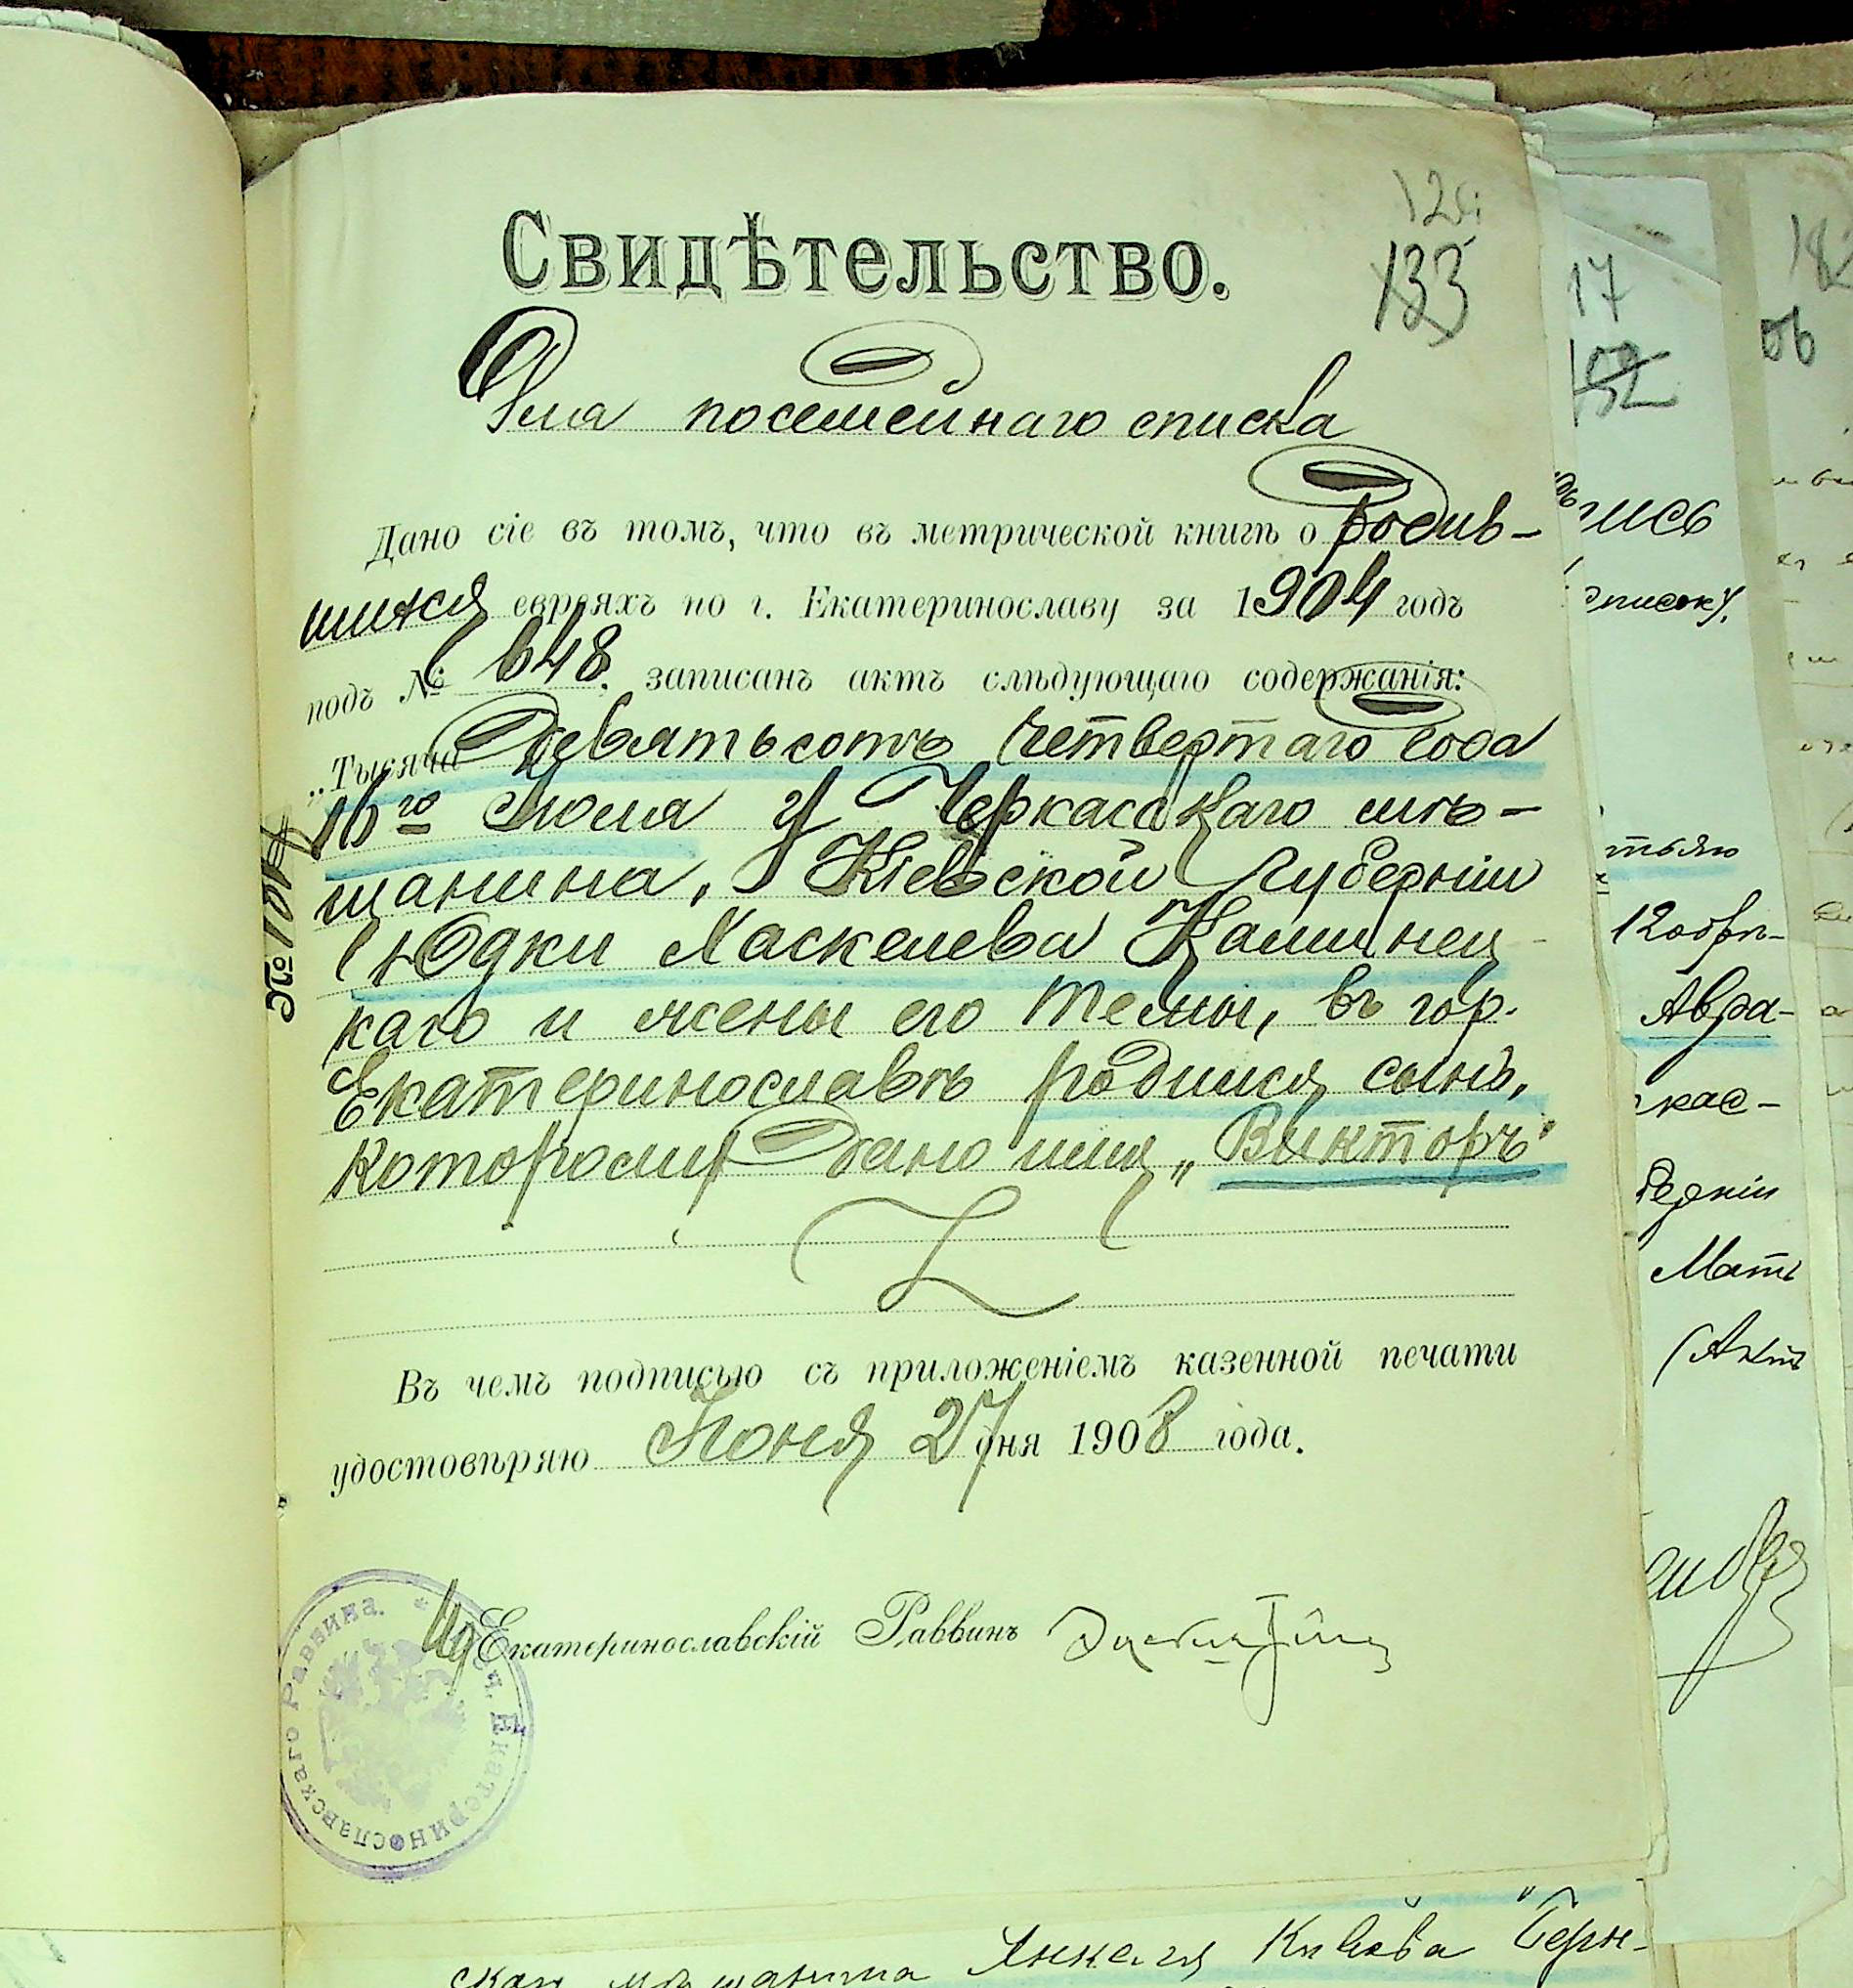 133
Свидѣтельство.
Для посемейнаго списка
Дано сіе въ томъ, что въ метрической книгѣ о родив-
шихся евреяхъ по г. Екатеринославу за 1904 годъ
подъ № 648. записанъ актъ слѣдующаго содержанія:
„Тысяча девятьсотъ четвертаго года
16го Іюля у Черкасскаго мѣ-
щанина, Кіевской губерніи
Юдки Хаскелева Каминец-
каго и жены его Темы, въ гор.
Екатеринославѣ родился сынъ,
которому дано имя „Викторъ"
Въ чемъ подписью съ приложеніемъ казенной печати
удостовѣряю Іюня 27 дня 1908 года.
Ид Екатеринославскій Раввинъ
Екатеринославскаго Раввина.
17
списку.
тьяю
Авра-
кас-
берніи
Мать
(Актъ